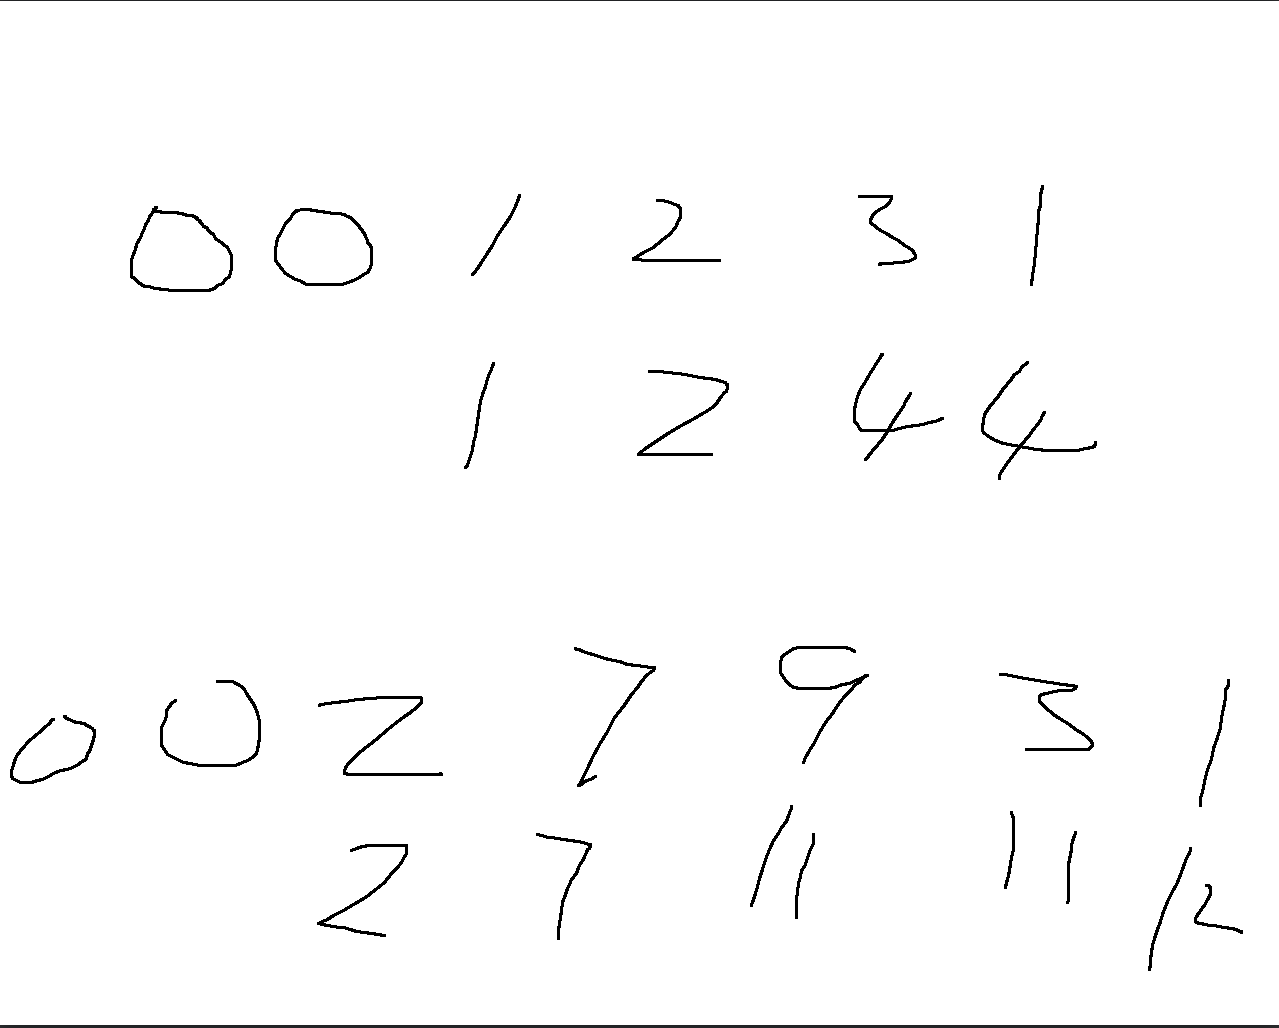 0 0 1 2 3 1
1 2 4 4
0 0 2 7 9 3 1
2 7 11 11 12